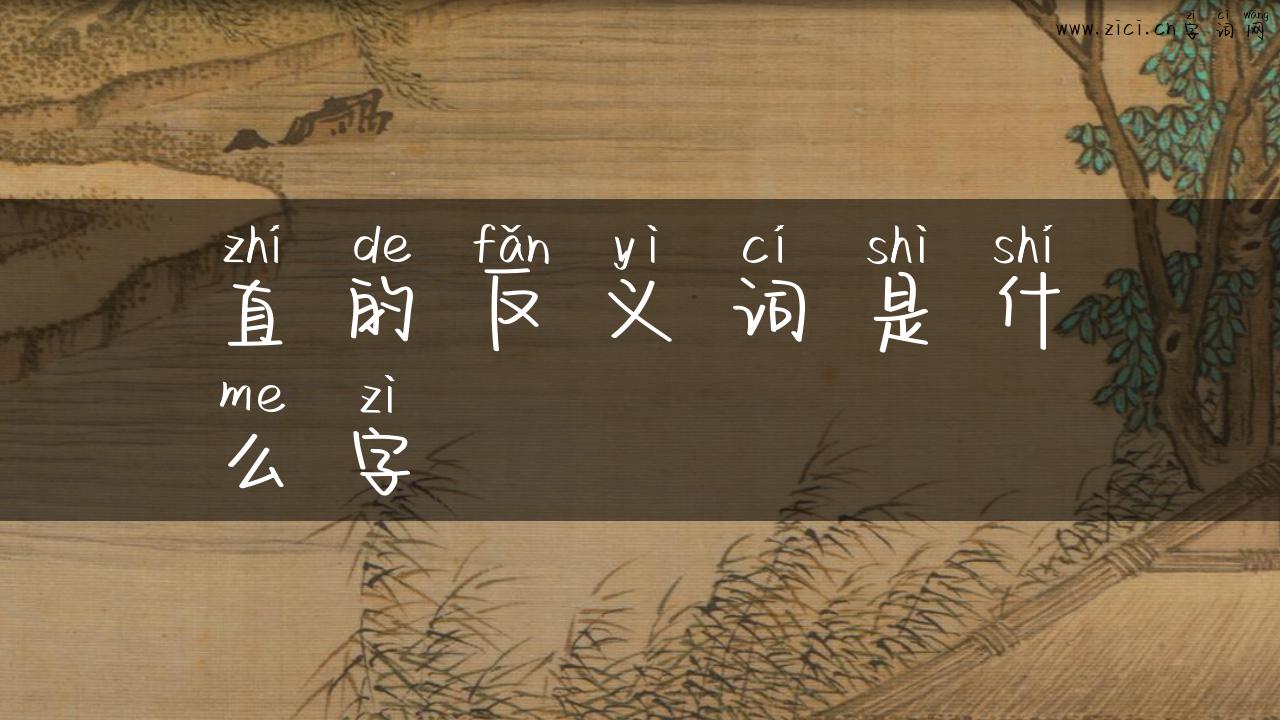 zì cí wǎng
www.zici.cn字词网
zhí de fǎn yì cí shì shí
直的反义词是什
me zì
么字